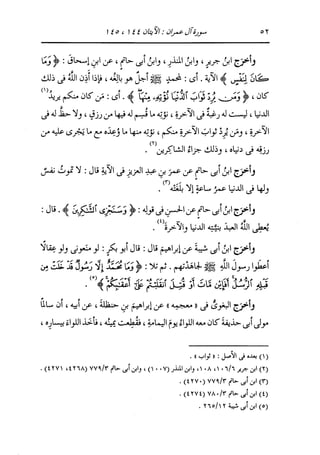 ٥٢ سورة آل عمران : الآيتان ١٤٤ ، ١٤٥
وأخرج ابنُ جريرٍ ، وابنُ المنذرِ ، وابنُ أبى حاتمٍ ، عن ابنِ إسحاقَ : ﴿ وَمَا
كَانَ لِنَفْسٍ ﴾ الآية . أى : لمحمدٍ ﷺ أجلٌ هو بالغُه ، فإذا أذِن اللَّهُ فى ذلك
كان ، ﴿ وَمَن يُرِدْ ثَوَابَ ٱلدُّنْيَا نُؤْتِهِۦ مِنْهَا ﴾ . أى : مَن كان منكم يريدُ(١)
الدنيا ، ليست له رغبةٌ فى الآخرةِ ، نؤتِه ما قُسِم له فيها مِن رزقٍ ، ولا حظَّ له فى
الآخرةِ ، ومَن يُرِدْ ثوابَ الآخرةِ منكم ، نؤتِه منها ما وُعِده مع ما يُجرَى عليه مِن
رزقِه فى دنياه ، وذلك جزاءُ الشاكرين(٢) .
وأخرج ابنُ أبى حاتمٍ عن عمرَ بنِ عبدِ العزيزِ فى الآيةِ قال : لا تموتُ نفسٌ
ولها فى الدنيا عمرُ ساعةٍ إلا بلغَتْه(٣) .
وأخرج ابنُ أبى حاتمٍ عن الحسنِ فى قولِه : ﴿ وَسَنَجْزِى ٱلشَّٰكِرِينَ ﴾ . قال :
يُعطِى اللَّهُ العبدَ بنيَّتِه الدنيا والآخرةَ(٤) .
وأخرج ابنُ أبى شيبةَ عن إبراهيمَ قال : قال أبو بكرٍ : لو منَعونى ولو عِقالًا
أعطَوا رسولَ اللَّهِ ﷺ لجاهَدتُهم . ثم تلا : ﴿ وَمَا مُحَمَّدٌ إِلَّا رَسُولٌ قَدْ خَلَتْ مِن
قَبْلِهِ ٱلرُّسُلُ أَفَإِي۟ن مَّاتَ أَوْ قُتِلَ ٱنقَلَبْتُمْ عَلَىٰٓ أَعْقَٰبِكُمْ ﴾(٥) .
وأخرج البغوىُّ فى « معجمِه » عن إبراهيمَ بنِ حنظلةَ ، عن أبيه ، أن سالمًا
مولى أبى حذيفةَ كان معه اللواءُ يومَ اليمامةِ ، فقُطِعت يمينُه ، فأخَذ اللواءَ بيسارِه ،
(١) بعده فى الأصل : « ثواب » .
(٢) ابن جرير ١٠٦/٦، ١٠٨، وابن المنذر (١٠٠٧) ، وابن أبى حاتم ٧٧٩/٣ (٤٢٦٨، ٤٢٧١) .
(٣) ابن أبى حاتم ٧٧٩/٣ (٤٢٧٠) .
(٤) ابن أبى حاتم ٧٨٠/٣ (٤٢٧٤) .
(٥) ابن أبى شيبة ٢٦٥/١٢ .